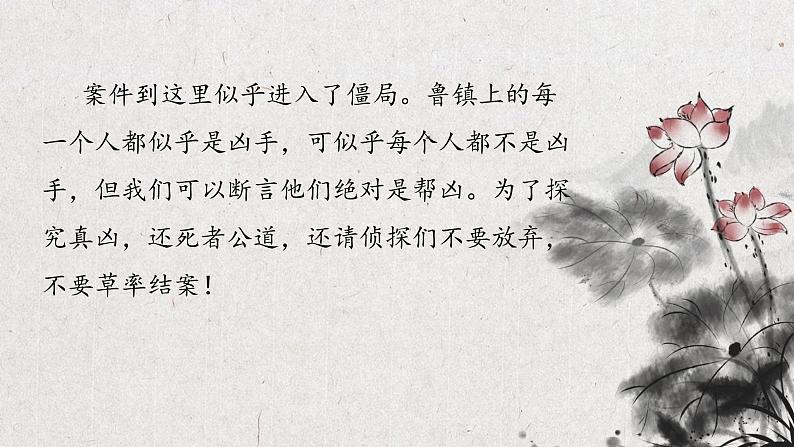 案件到这里似乎进入了僵局。鲁镇上的每
一个人都似乎是凶手，可似乎每个人都不是凶
手，但我们可以断言他们绝对是帮凶。为了探
究真凶，还死者公道，还请侦探们不要放弃，
不要草率结案！